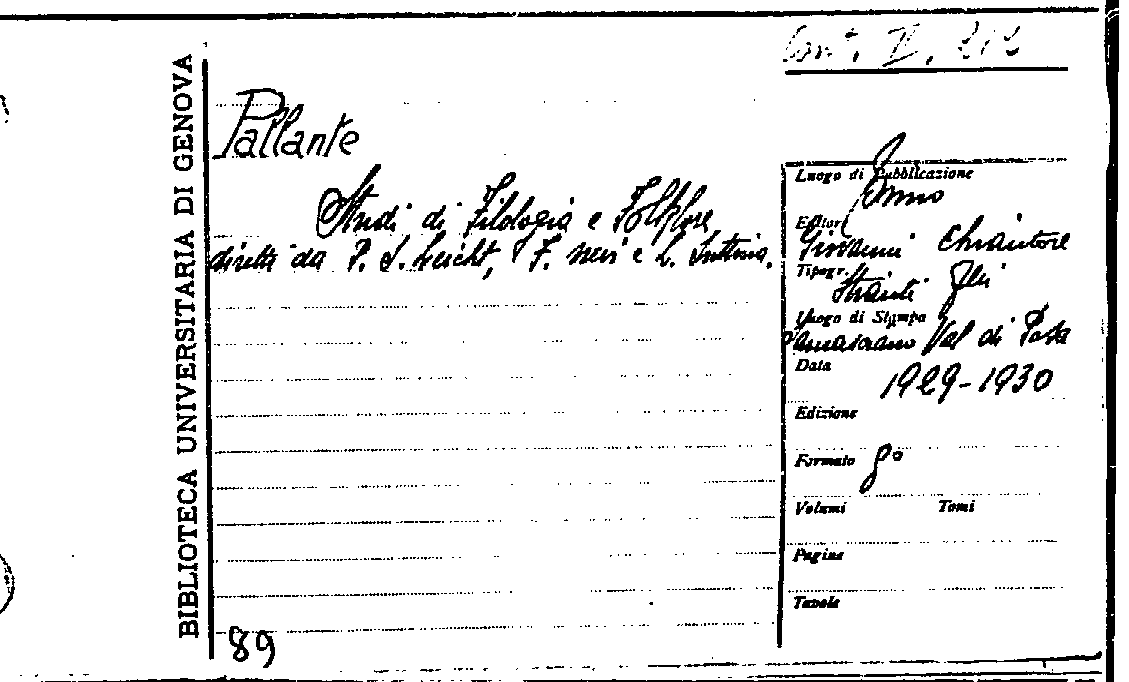 Cont. II. 212
BIBLIOTECA UNIVERSITARIA DI GENOVA
Pallante
Studi di Filologia e Folklore
diretti da P. S. Leicht, F. Neri e L. Suttina.
Luogo di Pubblicazione
Editori
Giovanni Chiantore
Tipogr.
Luogo di Stampa
Val di
Data
1929-1930
Edizione
Formato 8°
Volumi Tomi
Pagine
Tavole
89